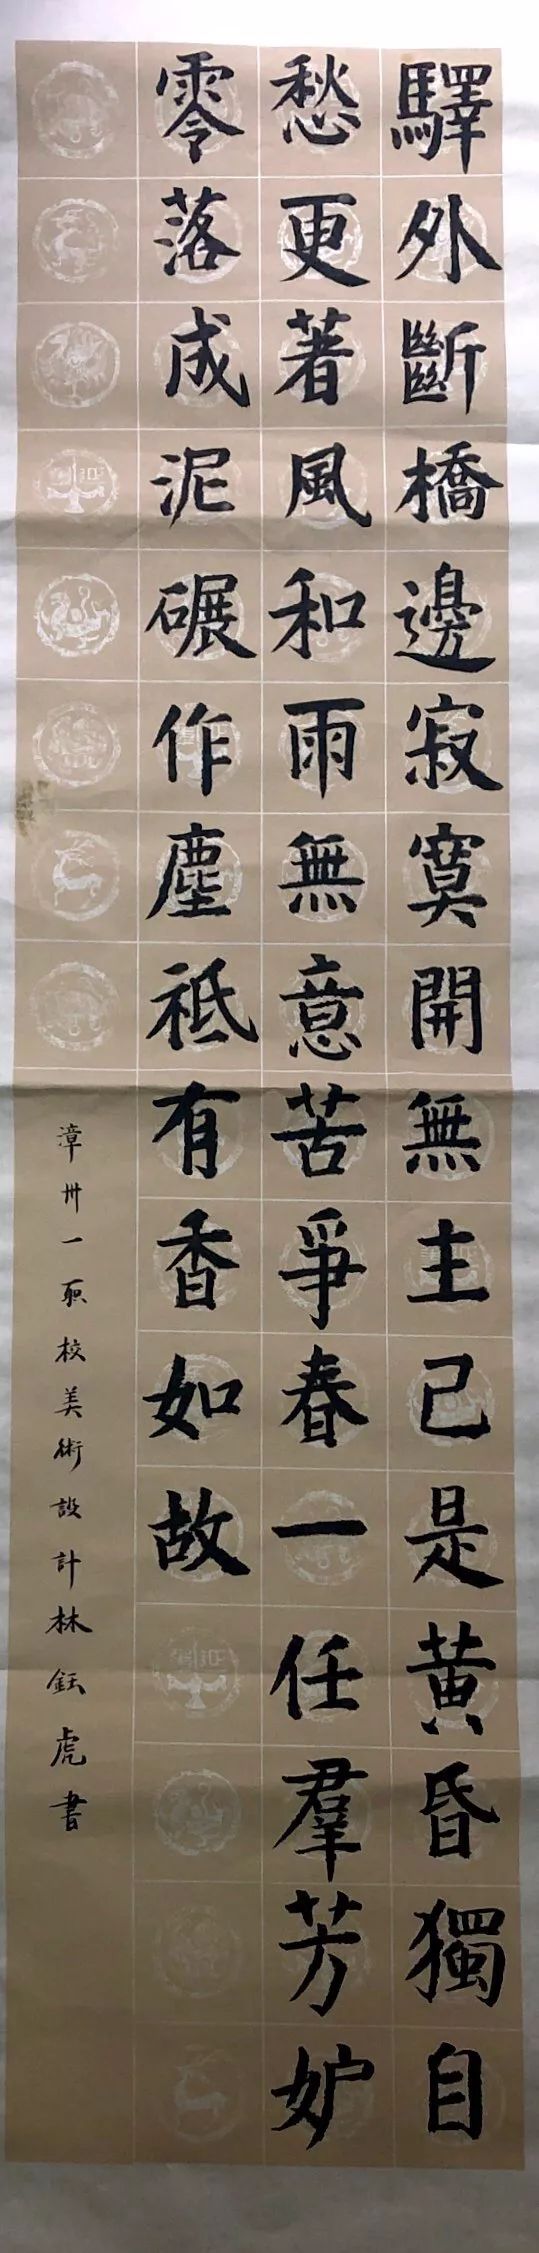 驛外斷橋邊寂寞開無主已是黃昏獨自
愁更著風和雨無意苦爭春一任羣芳妒
零落成泥碾作塵祗有香如故
漳州一职校美術設計林鈺虎書